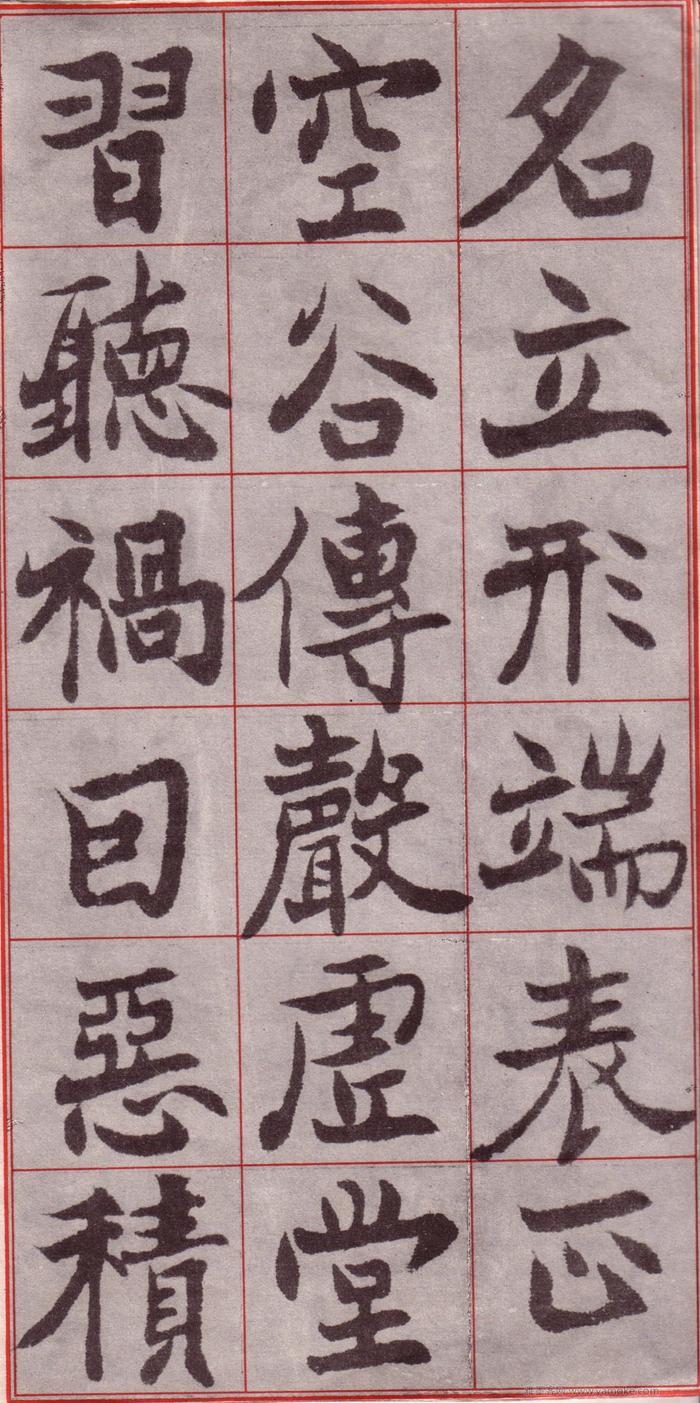 名立形端表正
空谷傳聲虛堂
習聽禍因惡積